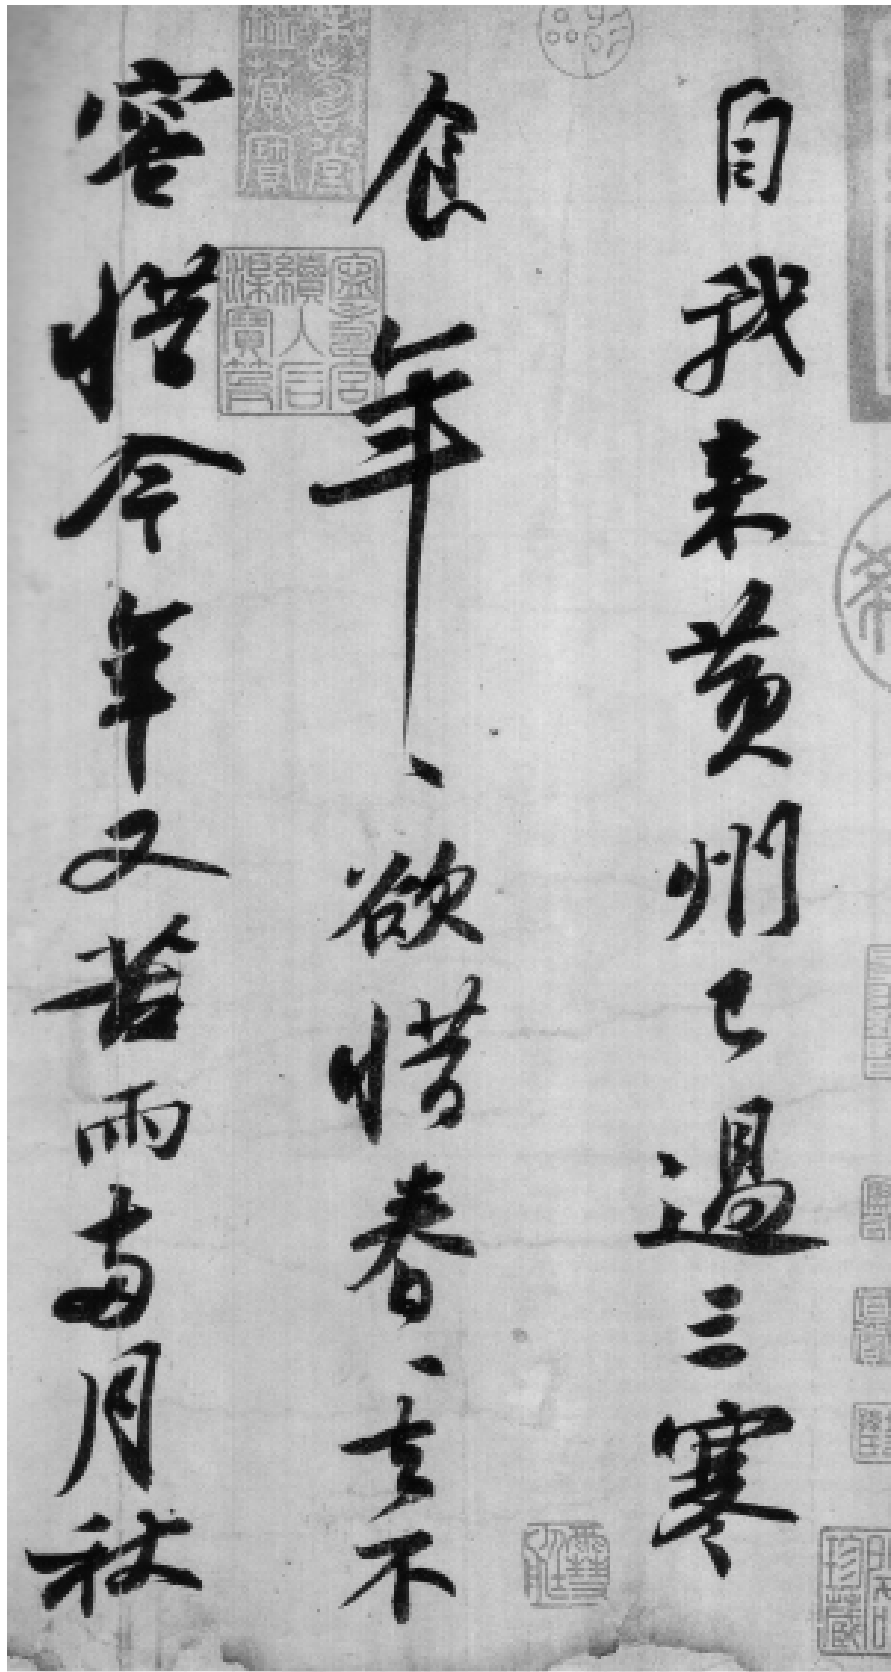 自我来黄州已過三寒
食年、欲惜春、去不
容惜今年又苦雨兩月秋
珍藏